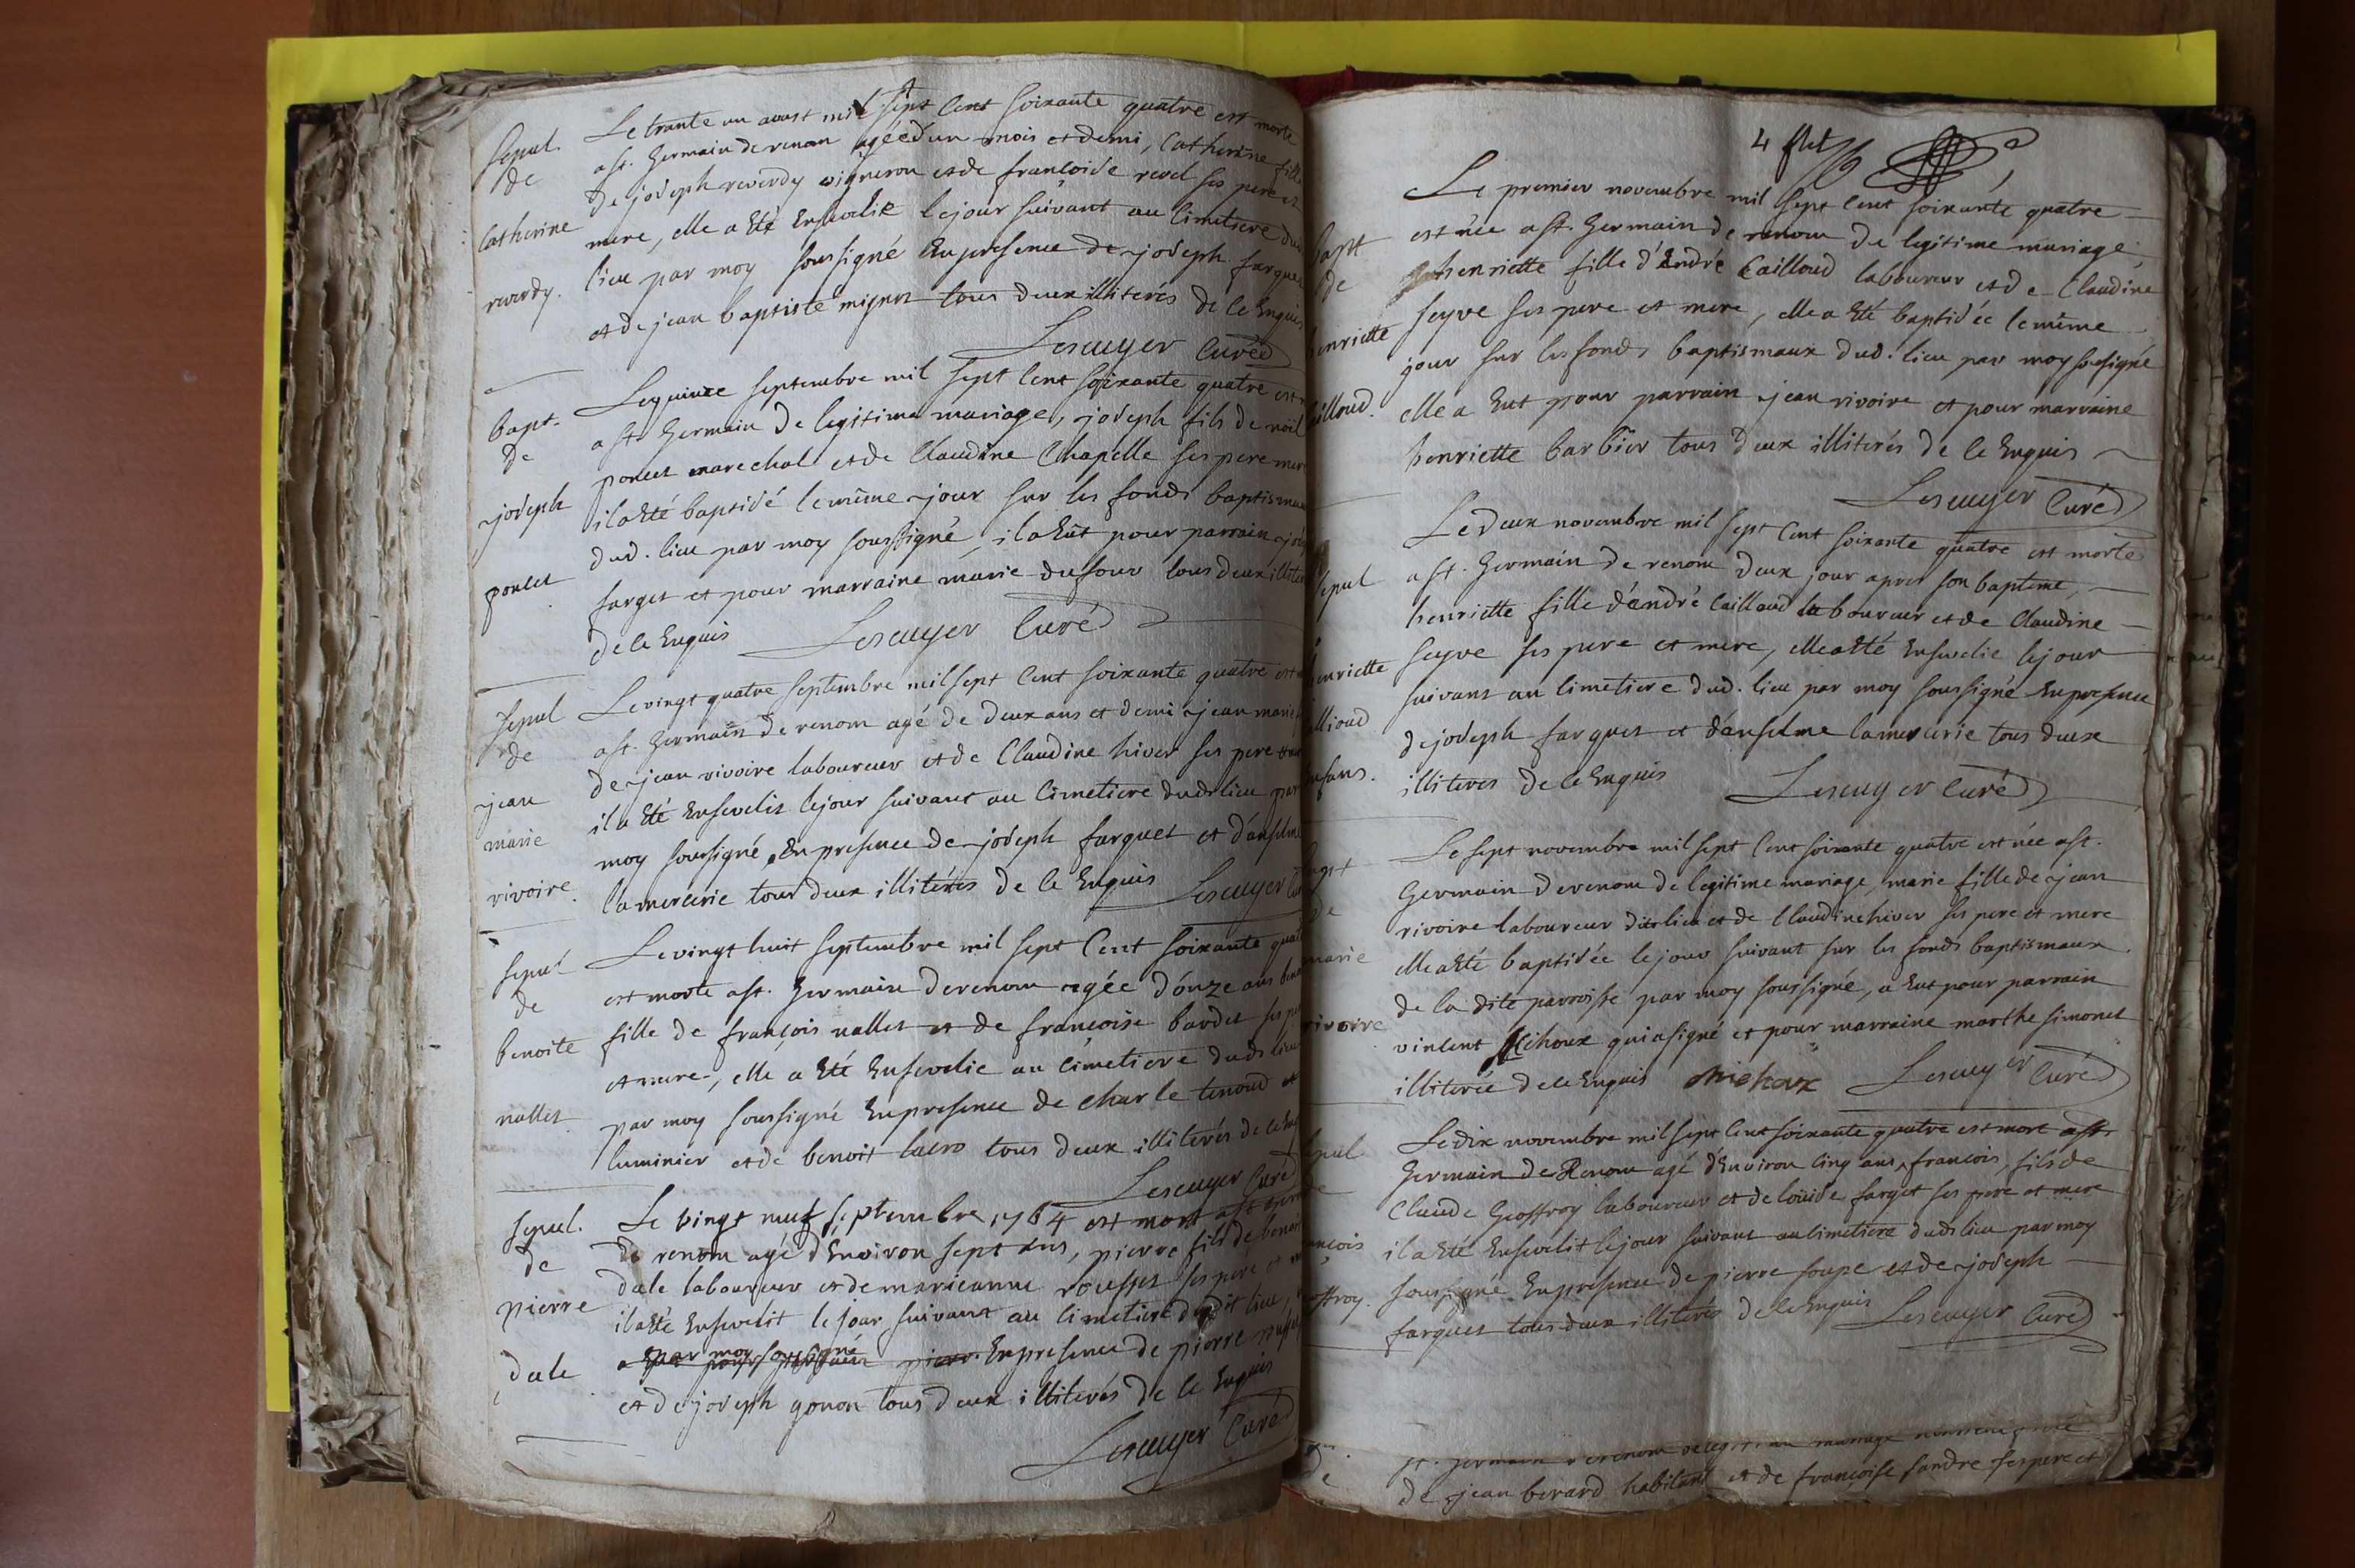 Sepul.
de
Catherine
reverdy.
Le trante un aoust mil sept cent soixante quatre est morte
a st. Germain de renom agéé d'un mois et demi, Catherine fille
de joseph reverdy vigneron et de francoise revel ses pere et
mere, elle a Eté Ensevelie le jour suivant au Cimetiere dud
lieu par moy soussigné En presence de joseph farques
et de jean baptiste mignot tous deux illiterés de ce Enquis
Lescuyer Curé
bapt.
de
joseph
poncet
Le quinze septembre mil sept Cent soixante quatre est
a st. Germain de legitime mariage, joseph fils de noël
poncet marechal et de Claudine Chapelle ses pere mere
il a Eté baptisé le même jour sur les fonds baptismaux
dud. lieu par moy soussigné, il a Eut pour parrain
farget et pour marraine marie dufour tous deux
de ce Enquis Lescuyer Curé
sepul
de
jean
marie
rivoire.
Le vingt quatre septembre mil sept Cent soixante quatre est
a st. Germain de renom agé de deux ans et demi jean marie
de jean rivoire laboureur et de Claudine hiver ses pere
il a Eté Ensevelit le jour suivant au Cimetiere dud lieu par
moy soussigné, En presence de joseph farques et d'anselme
lamercerie tous deux illitérés de ce Enquis Lescuyer
sepul
de
benoite
nallet
Le vingt huit septembre mil sept Cent soixante
est morte a st. Germain de renom agée d'onze ans
fille de françois nallet et de francoise bardet
et mere, elle a Eté Ensevelie au Cimetiere dud lieu
par moy soussigné En presence de Charle tenoud et
luminier et de benoit tous deux illiterés de ce
Lescuyer Curé
sepul.
de
pierre
dule
Le vingt neuf septembre 1764 est mort a st
de renom agé d'Environ sept ans, pierre fils de benoit
dule laboureur et de marieanne rousset ses pere et
il a Eté Ensevelit le jour suivant au Cimetiere dudit lieu,
par moy soussigné En presence de pierre
et de joseph gonon tous deux illiterés de ce Enquis
Lescuyer Curé
bapt
de
henriette
Le premier novembre mil sept Cent soixante quatre
est née a st. Germain de renom de legitime mariage,
henriette fille d'André Cailloud laboureur et de Claudine
seyve ses pere et mere, elle a Eté baptisée le même
jour sur les fonds baptismaux dud. lieu par moy sousigné
elle a Eut pour parrain jean rivoire et pour marraine
henriette barbier tous deux illiterés de ce Enquis
Lescuyer Curé
sepul
Le deux novembre mil sept Cent soixante quatre est morte
a st. Germain de renom deux jour apres son bapteme,
henriette fille d'andré Cailloud laboureur et de Claudine
seyve ses pere et mere, elle a Eté Ensevelie le jour
suivant au Cimetiere dud. lieu par moy soussigné En presence
de joseph farques et d'anselme lamercerie tous deux
illiteres de ce Enquis Lescuyer Curé
marie
rivoire
Le sept novembre mil sept Cent soixante quatre est née a st.
Germain de renom de legitime mariage, marie fille de jean
rivoire laboureur dud lieu et de Claudine hiver ses pere et mere
elle a Eté baptisée le jour suivant sur les fonds baptismaux
de la dite parroisse par moy soussigné, a Eut pour parrain
vincent Michoux qui a signé et pour marraine marthe simonet
illiterée de ce Enquis michoux Lescuyer Curé
Le dix novembre mil sept Cent soixante quatre est mort a st.
Germain de Renom agé d'Environ Cinq ans, francois, fils de
Claude Geoffroy laboureur et de loüise farget ses pere et mere
il a Eté Ensevelit le jour suivant au Cimetiere dud lieu par moy
soussigné En presence de pierre soupe et de joseph
farques tous deux illiterés de ce Enquis Lescuyer Curé
st. germain de renom de mariage
de jean berard habitant et de françoise fandre ses pere et